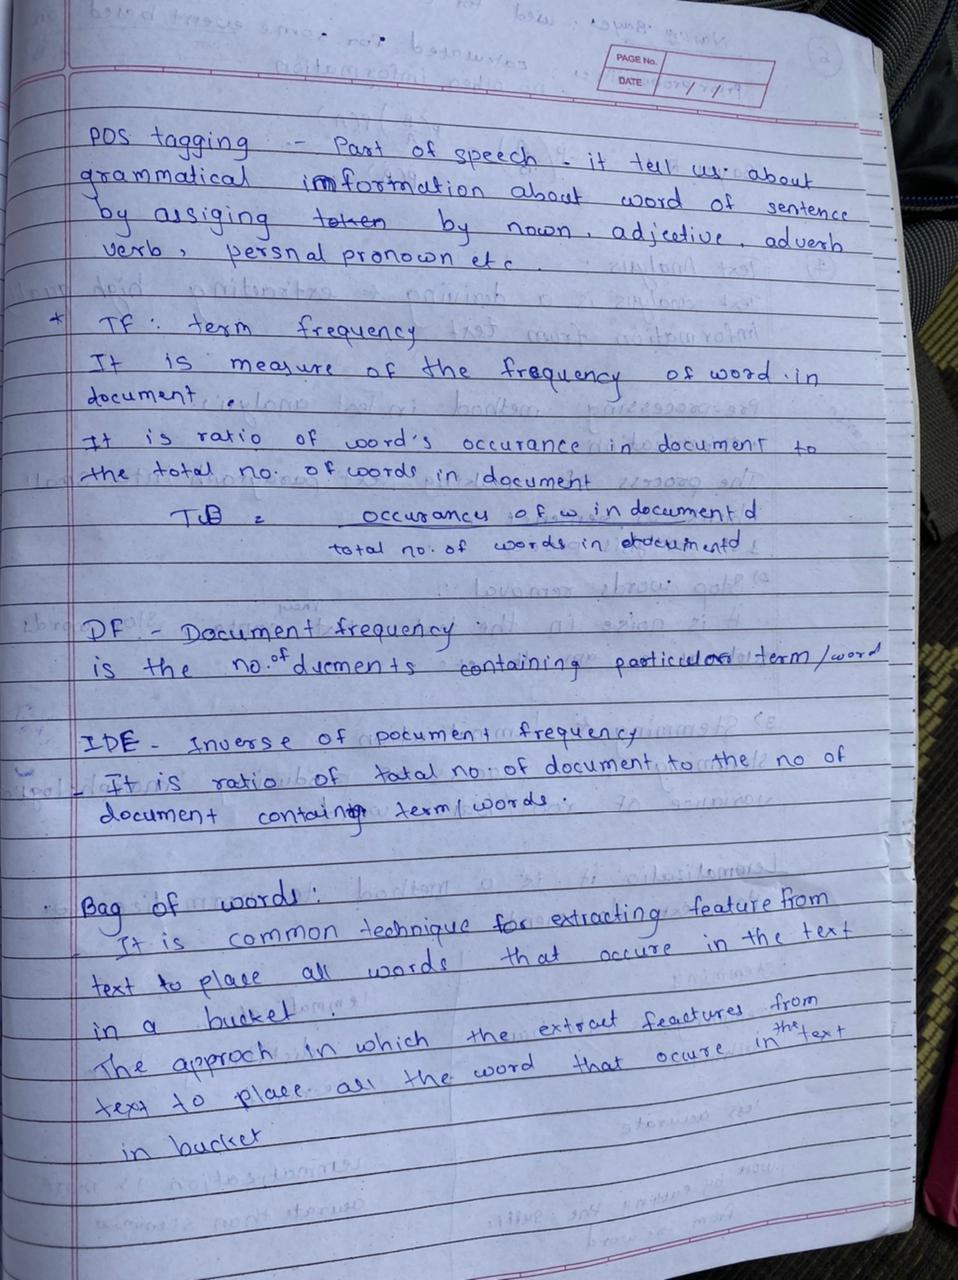 PAGE No.
DATE / /
POS tagging - Part of speech - it tell us about
grammatical information about word of sentence
by assiging token by nown, adjcetive, adverb
verb, persnal pronown etc.
* TF : term frequency
It is measure of the frequency of word in
document.
It is ratio of word's occurance in document to
the total no. of words in document
= occurancy of w in document d
total no. of words in documentd
DF - Document frequency
is the no. of ducments containing particular term/word
IDE - Inverse of pocument frequency
- It is ratio of total no. of document to the no of
document containg term/words.
Bag of words:
- It is common technique for extracting feature from
text to place all words that occure in the text
in a bucket.
The approch in which the extract feactures from
text to place all the word that ocure in the text
in bucket